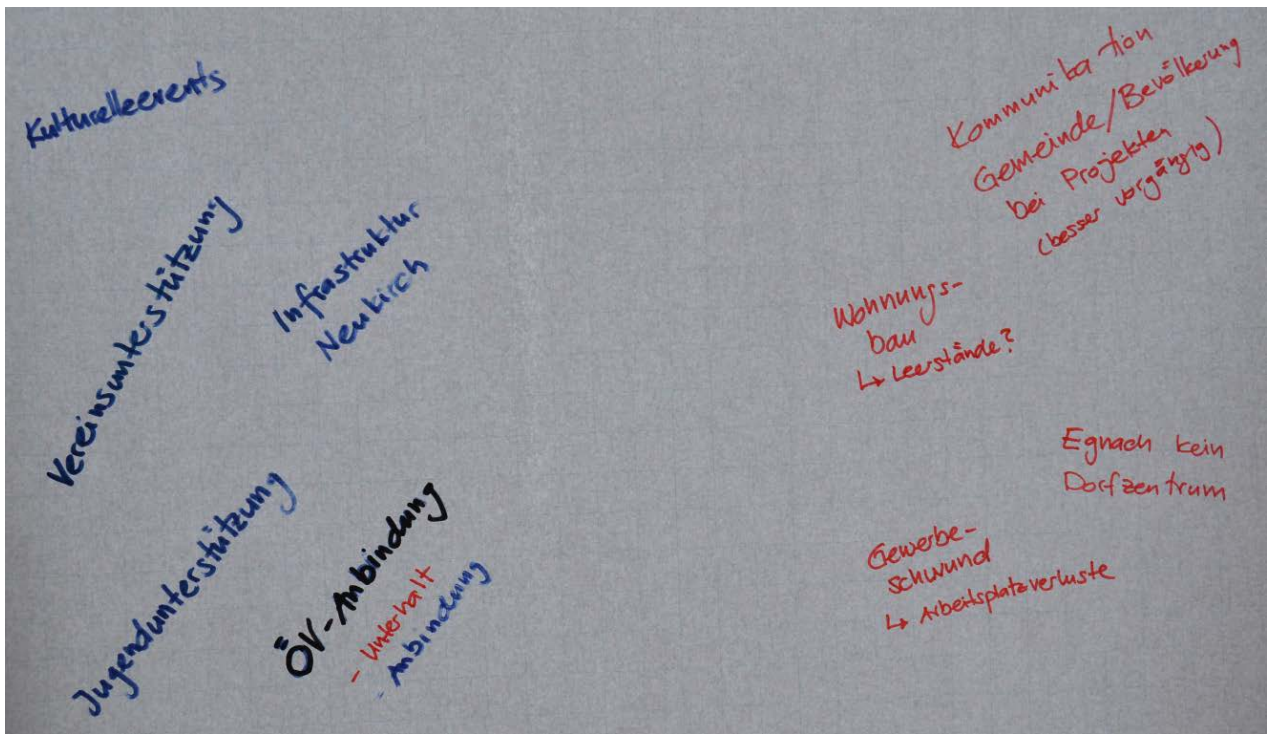 Kulturelleevents
Vereinsunterstützung
Infrastruktur
Neukirch
Jugendunterstützung
ÖV-Anbindung
- Unterhalt
- Anbindung
Kommunikation
Gemeinde/Bevölkerung
bei Projekten
(besser vorgängig)
Wohnungs-
bau
↳ Leerstände?
Egnach kein
Dorfzentrum
Gewerbe-
schwund
↳ Arbeitsplatzverluste